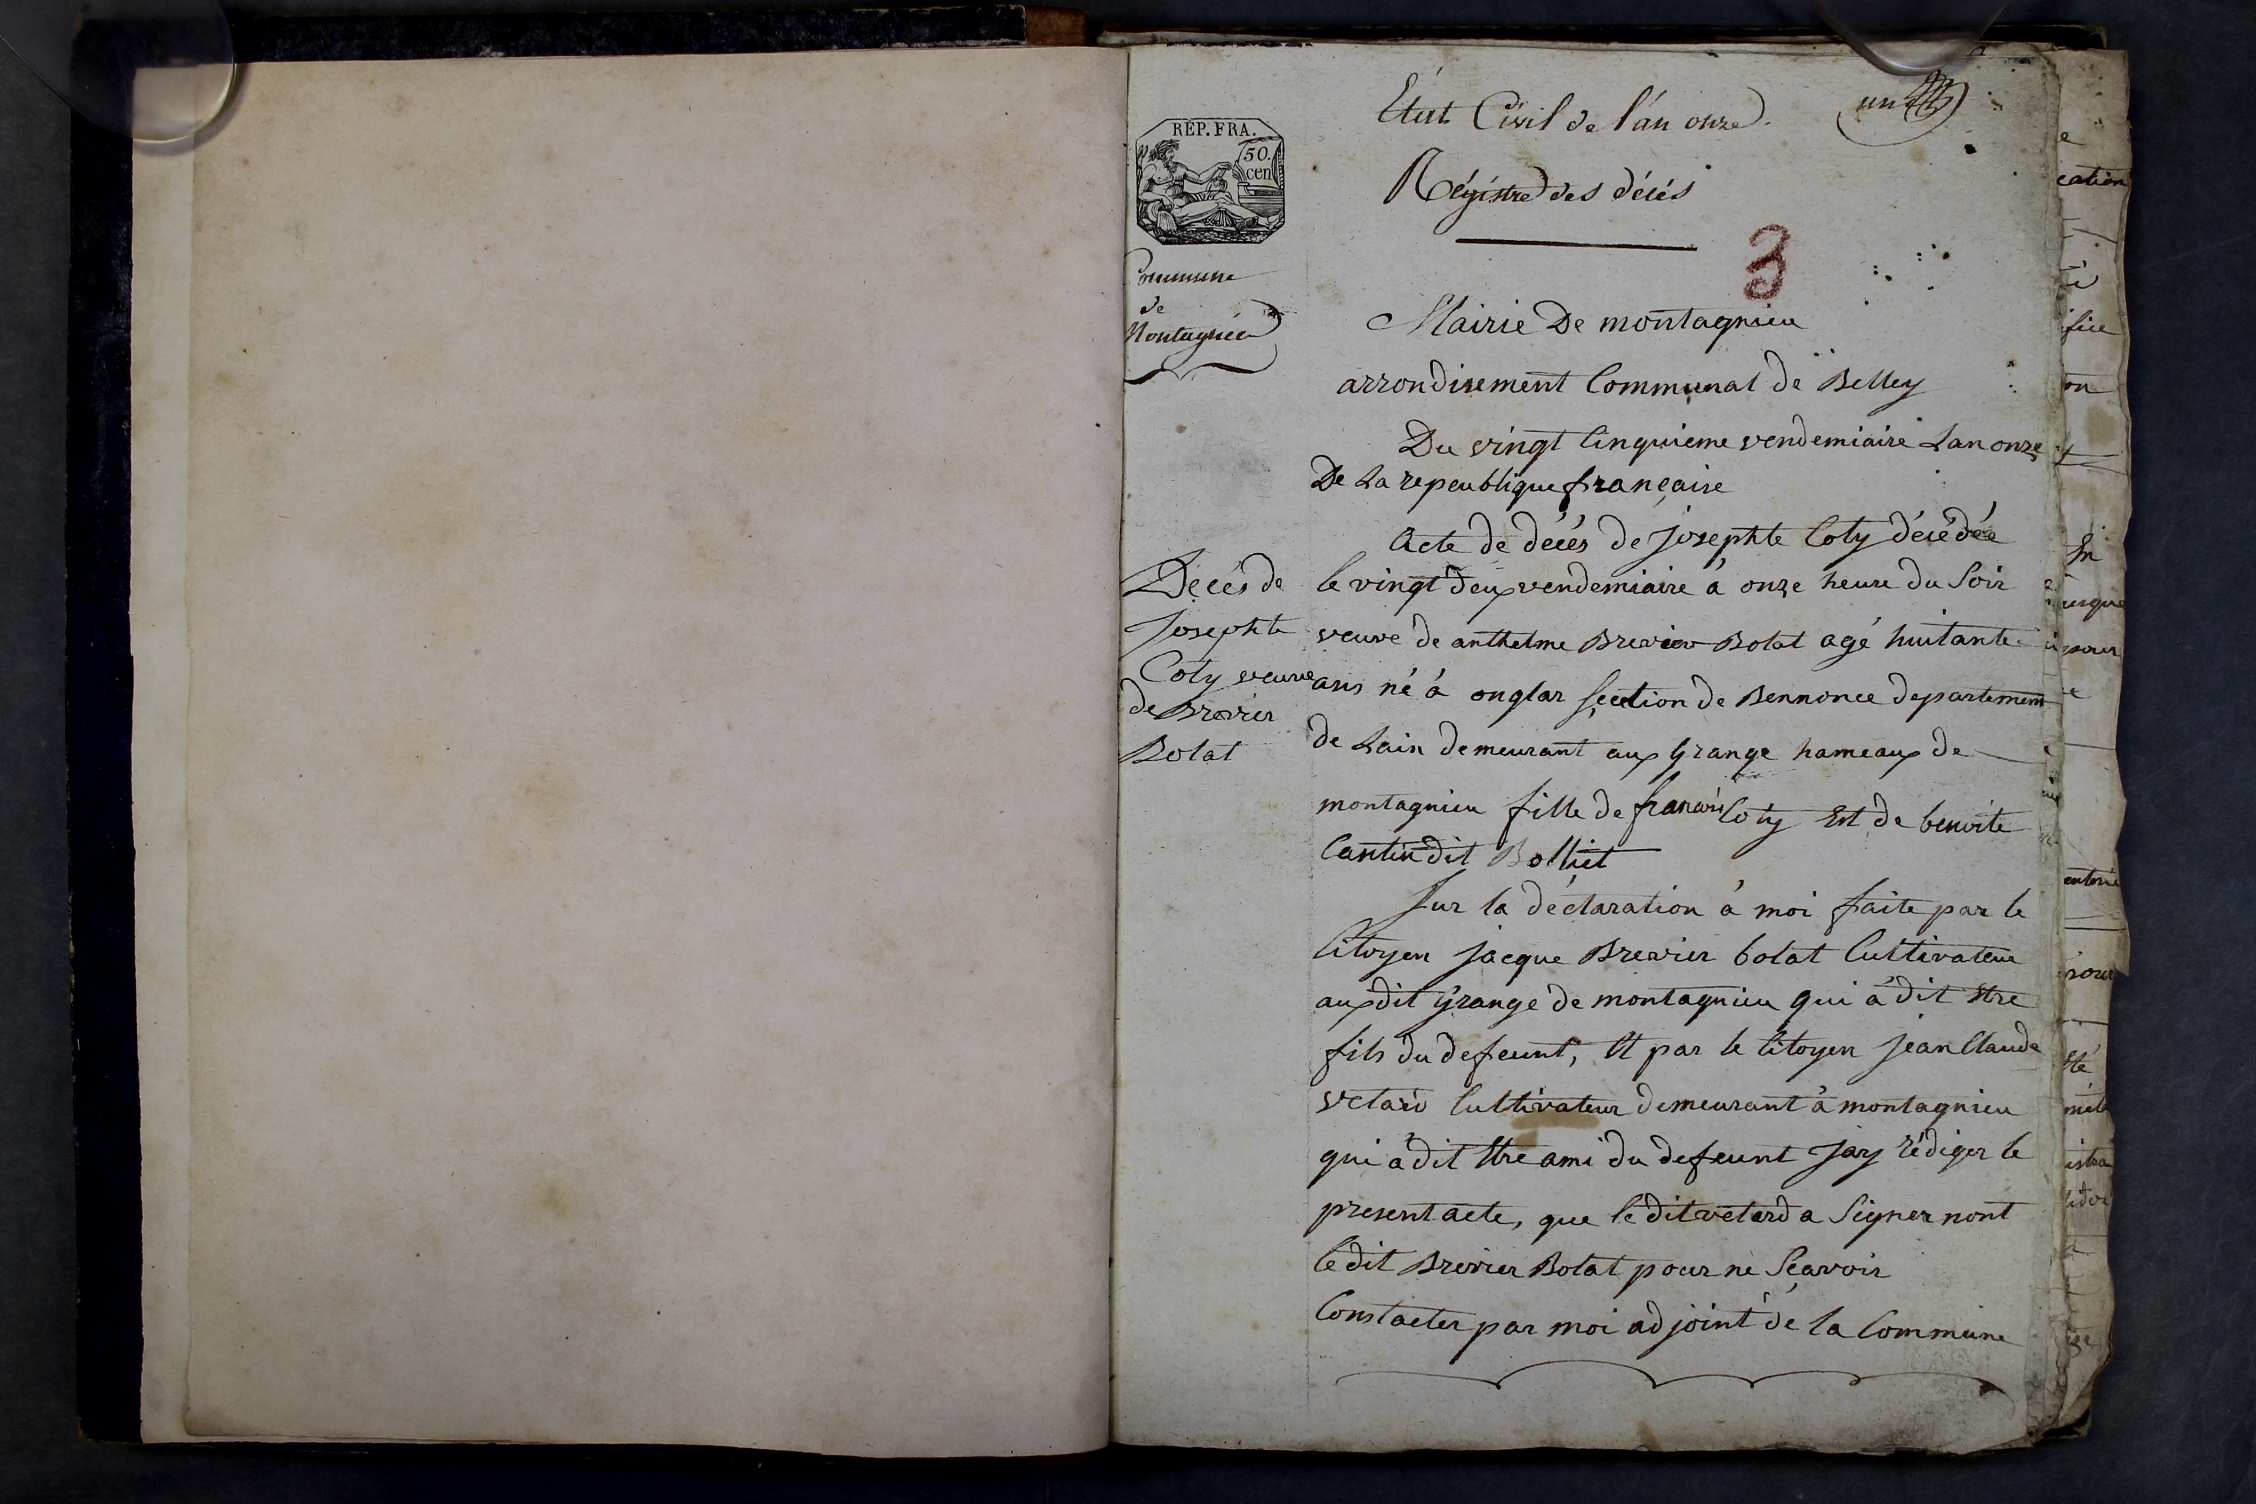 Etat Civil de l'an onze.
un
REP. FRA.
50.
cen
Régistre des décés
3
Commune
de
Montagnieu
Mairie De montagnieu
arrondisement Communal de Belley
Du vingt Cinquieme vendemiaire Lan onze
De La repeublique française
Acte de décés de josephte Coty décédée
le vingt deux vendemiaire à onze heure du Soir
veuve de anthelme Brevier Bolat agé huitante
ans né à onglas section de Bennonce departement
de Lain demeurant aux Grange hameaux de
montagnieu fille de francois Coty Est de benoite
Cantin dit Bolliet
Decés de
Josephte
Coty veuve
de Brevier
Bolat
Sur la déclaration à moi faite par le
Citoyen jacque Brevier bolat Cultivateur
aux dit grange de montagnieu qui à dit Etre
fils du defeunt, Et par le Citoyen jean Claude
vetard Cultivateur demeurant à montagnieu
qui à dit Etre ami du defeunt jay rédiger le
present acte, que le dit vetard a Signer nont
le dit Brevier Bolat pour ne Sçavoir
Constacter par moi adjoint de la Commune